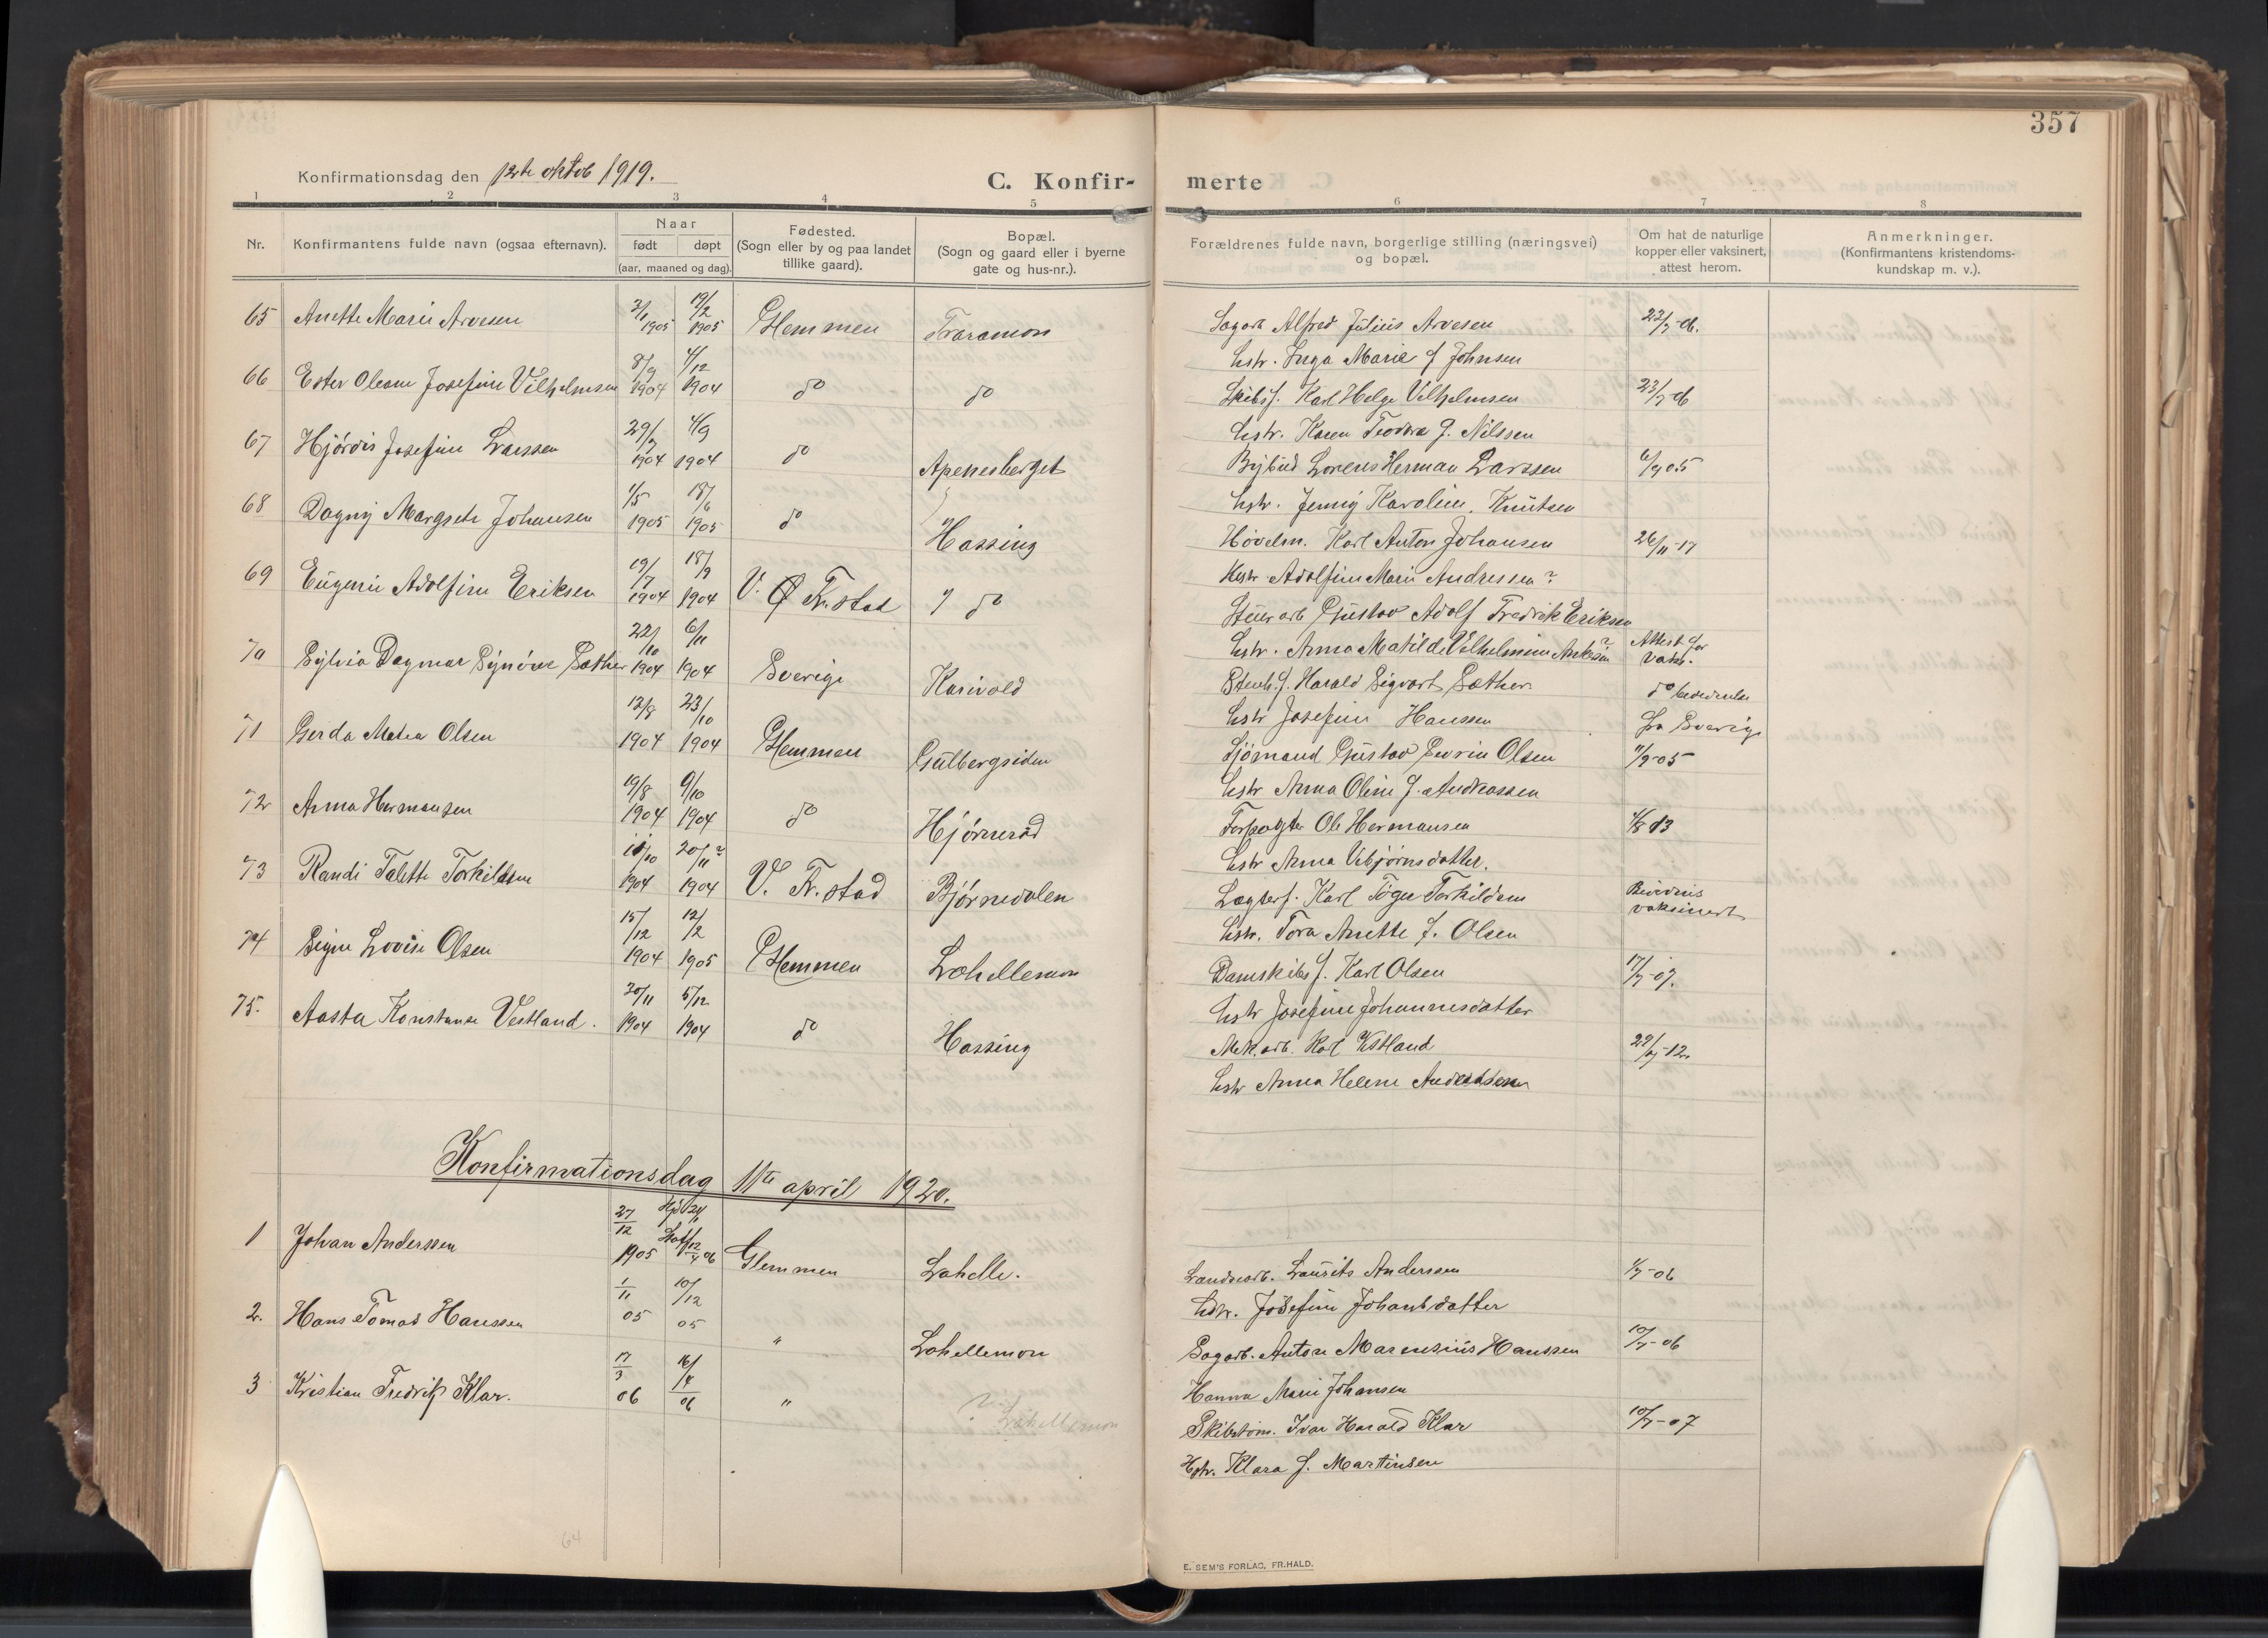 357
Konfirmationsdag den 12te oktob 1919.
C. Konfir-
merte
1 2 3 4 5 6 7 8
Nr.
Konfirmantens fulde navn (ogsaa efternavn).
Naar
født døpt
(aar, maaned og dag).
Fødested.
(Sogn eller by og paa landet
tillike gaard).
Bopæl.
(Sogn og gaard eller i byerne
gate og hus-nr.).
Forældrenes fulde navn, borgerlige stilling (næringsvei)
og bopæl.
Om hat de naturlige
kopper eller vaksinert,
attest herom.
Anmerkninger.
(Konfirmantens kristendoms-
kundskap m. v.).
65 Anette Marie Arvesen 3/1 1905 19/2 1905 Glemmen Traramon
Sagarb Alfred Julius Arvesen
Hstr. Inga Marie f Johnsen
66 Ester Oleane Josefine Vilhelmsen 8/9 1904 4/12 1904 do do
Skibsf. Karl Helge Vilhelmsen
Hstr. Karen Teodora f. Nilssen
67 Hjórdis Josefine Larssen 29/7 1904 4/9 1904 do Apenesberget
Bybud Lorens Herman Larssen
Hstr. Jenny Karoline Knutsen
68 Dagny Margrete Johansen 1/5 1905 18/6 1905 do Hassing
Høvelm. Karl Anton Johansen 26/11-17
Hstr Adolfine Marie Andressen?
69 Eugenie Adolfine Eriksen 19/7 1904 18/9 1904 V. Ø Fr.stad do
Gustav Adolf Fredrik Eriksen
Hstr. Anna Matilde Vilhelmine ? Attest for
vaks.
70 Sylvia Dagmar Synöve Sæther 22/10 1904 6/11 1904 Sverige Karivold
Stenh.f. Harald Sigvart Sæther
Hstr Josefine Hanssen fra Sverige
71 Gerda Matea Olsen 12/8 1904 23/10 1904 Glemmen Gulbergsiden
Sjømand Gustav Severin Olsen 11/9-05
Hstr Anna Oline f. Andreassen
72 Anna Hermansen 19/8 1904 9/10 1904 do Hjørnerød
Forpagter Ole Hermansen
Hstr Anna Vebjørnsdatter.
73 Randi Talette Torkildsen 1904 20/11? 1904 V. Fr.stad Bjørnedalen
Karl Torkildsen
vaksinert
Hstr. Tora Anette f. Olsen
74 Signe Lovise Olsen 15/12 1904 12/2 1905 Glemmen Lahellemon
Damskibsf. Karl Olsen
Hstr Josefine Johannesdatter
75. Aasta Konstanse Vestland. 20/11 1904 5/12 1904 do Hassing
Mek.arb. Karl Vestland
Hstr Anna Helene Andreassen
Konfirmationsdag 11te april 1920.
1 Johan Anderssen 27/12 1905 Glemmen Lahelle.
Laurits Anderssen
Hstr. Josefine Johansdatter
2. Hans Tomas Hanssen 1/11 05 10/12 05 " Lahellemon
Sagarb. Anton Marensius Hanssen 10/7-06
Hanna Marie Johansen
3 Kristian Fredrik Klar. 17/3 06 16/4 06 " ? Lahellemon
Skibstøm. Ivar Harald Klar 10/7-07
Hstr. Klara f. Martinsen
64
E. SEM'S FORLAG, FR.HALD.